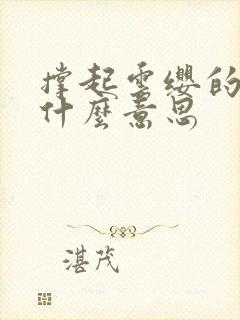 撐起雲纓的
什麼意思
湛茂